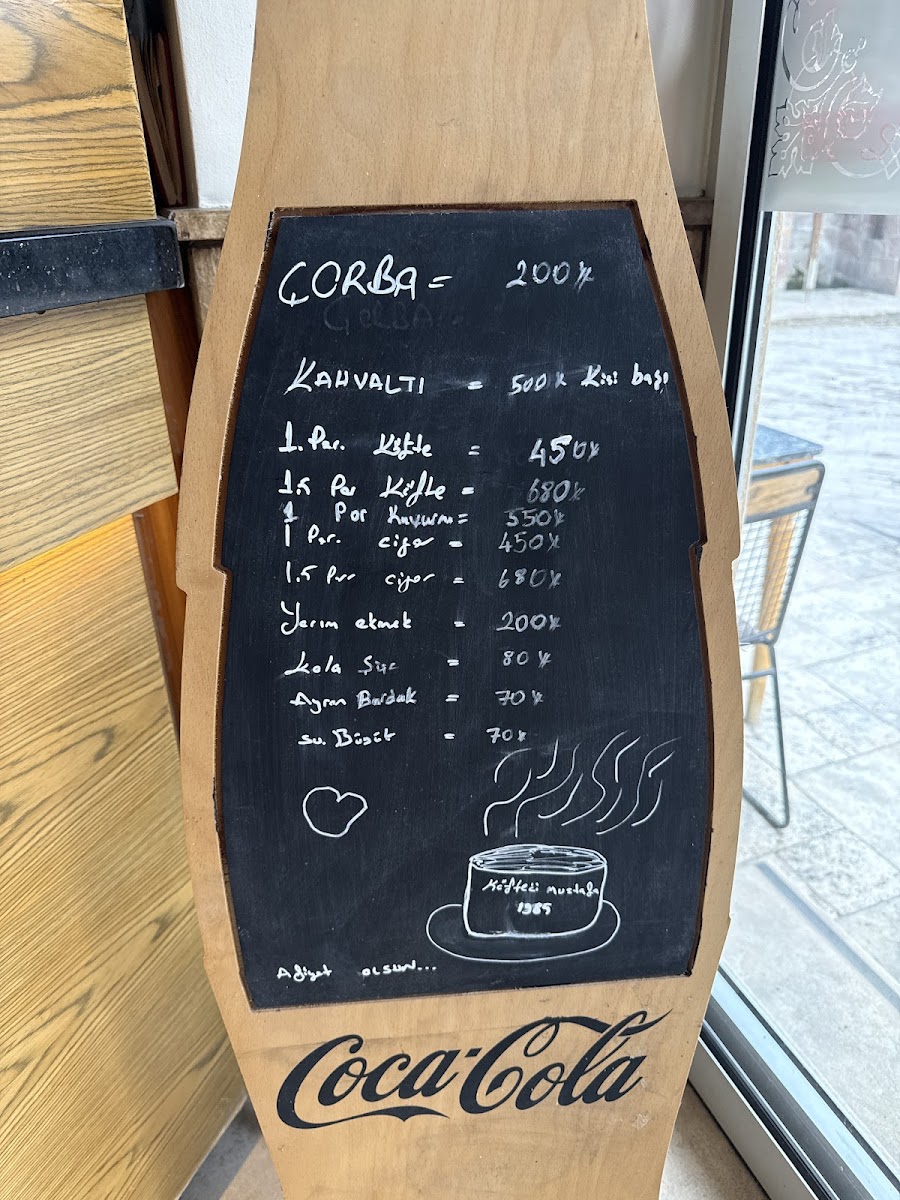 ÇORBA = 200₺
ÇORBA
KAHVALTI = 500₺ Kişi başı
1. Por. Köfte = 450₺
1.5 Por Köfte = 680₺
1 Por Kavurma = 550₺
1 Por. ciğer = 450₺
1.5 Por ciğer = 680₺
Yarım ekmek = 200₺
Kola Şişe = 80₺
Ayran Bardak = 70₺
Su. Büyük = 70₺
Köfteci Mustafa
1985
Afiyet OLSUN...
Coca-Cola